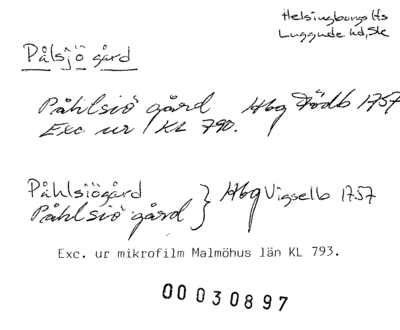 Helsingborgs lfs
Luggude hd, Sk
Pålsjö gård
Påhlsiö gård Hbg Födb 1757
Exc ur KL 790.
Påhlsiögård
Påhlsiö gård } Hbg Vigselb 1757
Exc. ur mikrofilm Malmöhus län KL 793.
00030897